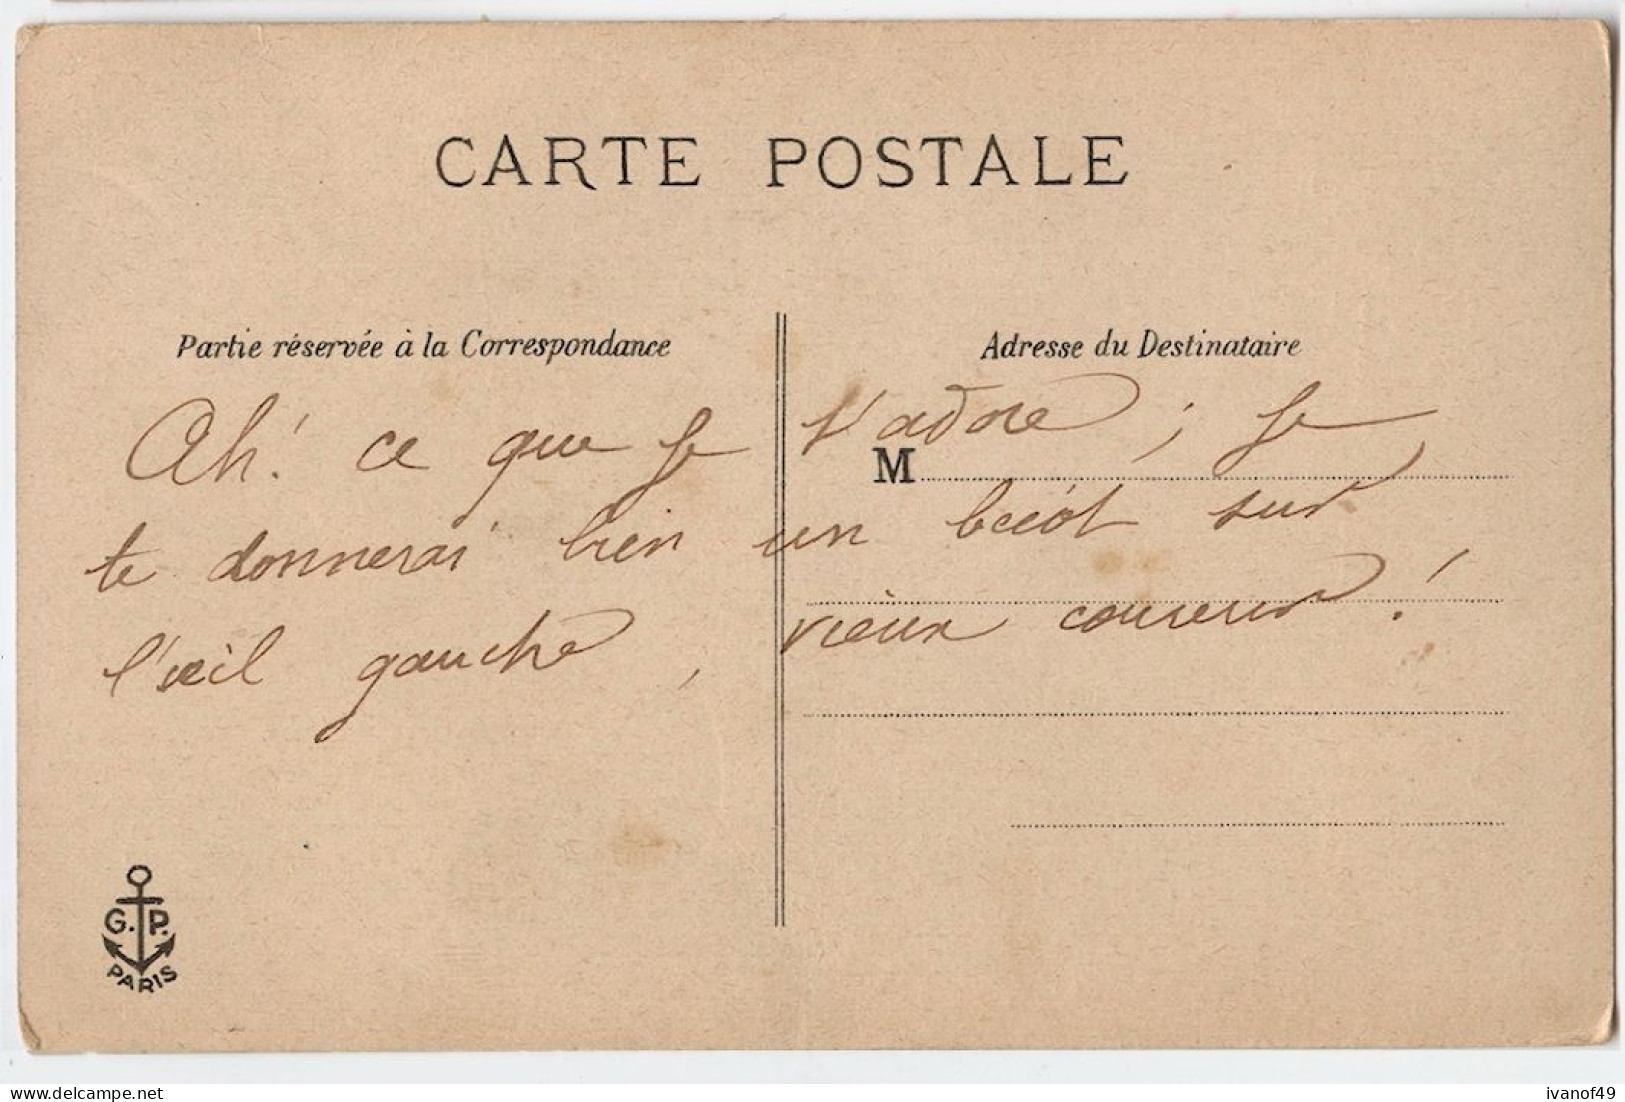 CARTE POSTALE
Partie réservée à la Correspondance
Adresse du Destinataire
Ah! ce que je t'adore ; je
M
te donnerai bien un bécot sur
l'œil gauche, vieux coureur !
G. P.
PARIS
ivanof49